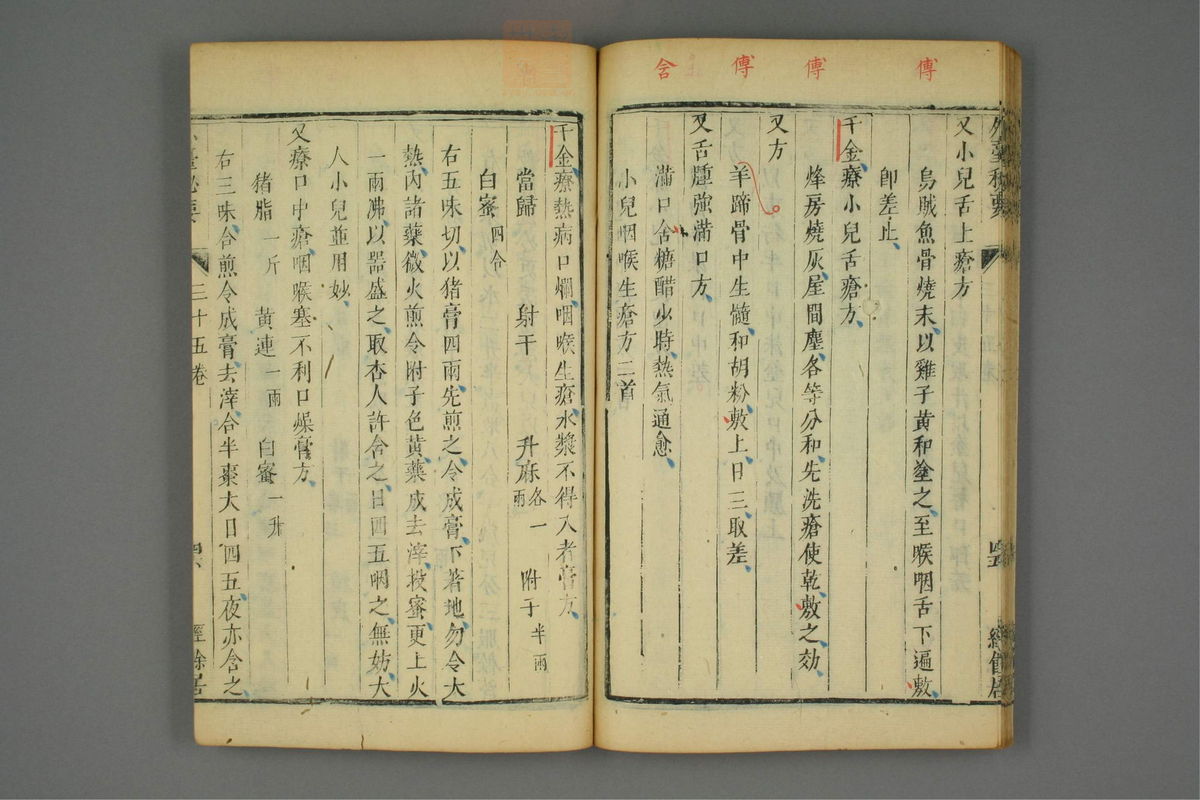 傅
傅
傅
舍
外臺秘要
四五
經餘居
又小兒舌上瘡方
烏賊魚骨燒末以雞子黃和塗之至喉咽舌下遍敷
即差止
千金療小兒舌瘡方
烽房燒灰屋間塵各等分和先洗瘡使乾敷之効
又方
羊蹄骨中生髓和胡粉敷上日三取差
又舌腫強滿口方
滿口含糖醋少時熱氣通愈
小兒咽喉生瘡方二首
千金療熱病口爛咽喉生瘡水漿不得入者膏方
當歸 射干 升麻各一兩 附子半兩
白蜜四合
右五味切以猪膏四兩先煎之令成膏下著地勿令大
熱內諸藥微火煎令附子色黃藥成去滓投蜜更上火
一兩沸以器盛之取杏人許含之日四五咽之無妨大
人小兒並用妙
又療口中瘡咽喉塞不利口燥膏方
猪脂一斤 黃連一兩 白蜜一升
右三味合煎令成膏去滓含半棗大日四五夜亦含之
臺秘要
三十五卷
四六
經餘居